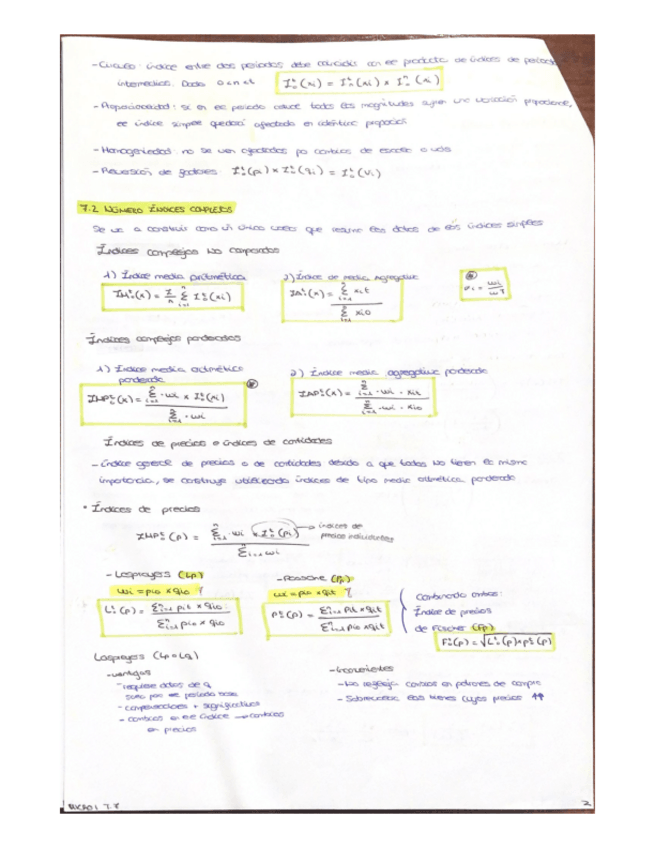 - Circular: índice entre dos periodos debe coincidir con el producto de índices de periodos
intermedios. Dado o<n<t I₀ᵗ(xi) = I₀ⁿ(xi) × Iₙᵗ(xi)
- Proporcionalidad: si en el periodo actual todas las magnitudes sufren una variación proporcional,
el índice simple quedará afectado en idéntica proporción
- Homogeneidad: no se ven afectados por cambios de escala o uds
- Reversión de factores: I₀ᵗ(pi) × I₀ᵗ(qi) = I₀ᵗ(vi)
7.2 NÚMERO ÍNDICES COMPLEJOS
Se va a construir como un único valor que resume los datos de los índices simples
Índices complejos no ponderados
1) Índice media aritmética 2) Índice de media agregativa
IM₀ᵗ(x) = 1/n Σⁿᵢ₌₁ I₀ᵗ(xi) IA₀ᵗ(x) = Σⁿᵢ₌₁ xit / Σⁿᵢ₌₁ xio
= wi / wT
Índices complejos ponderados
1) Índice media aritmética 2) Índice media agregativa ponderada
ponderada
IMP₀ᵗ(x) = Σⁿᵢ₌₁ · wi × I₀ᵗ(xi) / Σⁿᵢ₌₁ · wi IAP₀ᵗ(x) = Σⁿᵢ₌₁ · wi · xit / Σⁿᵢ₌₁ · wi · xio
Índices de precios o índices de cantidades
- Índice general de precios o de cantidades debido a que todos no tienen la misma
importancia, se construye utilizando índices de tipo media aritmética ponderada
• Índices de precios
IMP₀ᵗ(p) = Σⁿᵢ₌₁ wi × I₀ᵗ(pi) / Σⁿᵢ₌₁ wi → índices de
precios individuales
- Laspeyres (Lp) - Paasche (Pp)
wi = pio × qio wi = pio × qit
L₀ᵗ(p) = Σⁿᵢ₌₁ pit × qio / Σⁿᵢ₌₁ pio × qio P₀ᵗ(p) = Σⁿᵢ₌₁ pit × qit / Σⁿᵢ₌₁ pio × qit
Combinando ambos:
Índice de precios
de Fischer (Fp)
F₀ᵗ(p) = √L₀ᵗ(p) × P₀ᵗ(p)
Laspeyres (Lp = Lq)
- ventajas
- requiere datos de q
solo por el periodo base
- comparaciones + significativas
- cambios en el índice → cambios
en precios
- Inconvenientes
- No refleja cambios en patrones de compra
- Sobrevalora los bienes cuyos precios ↑↑
7.8
2